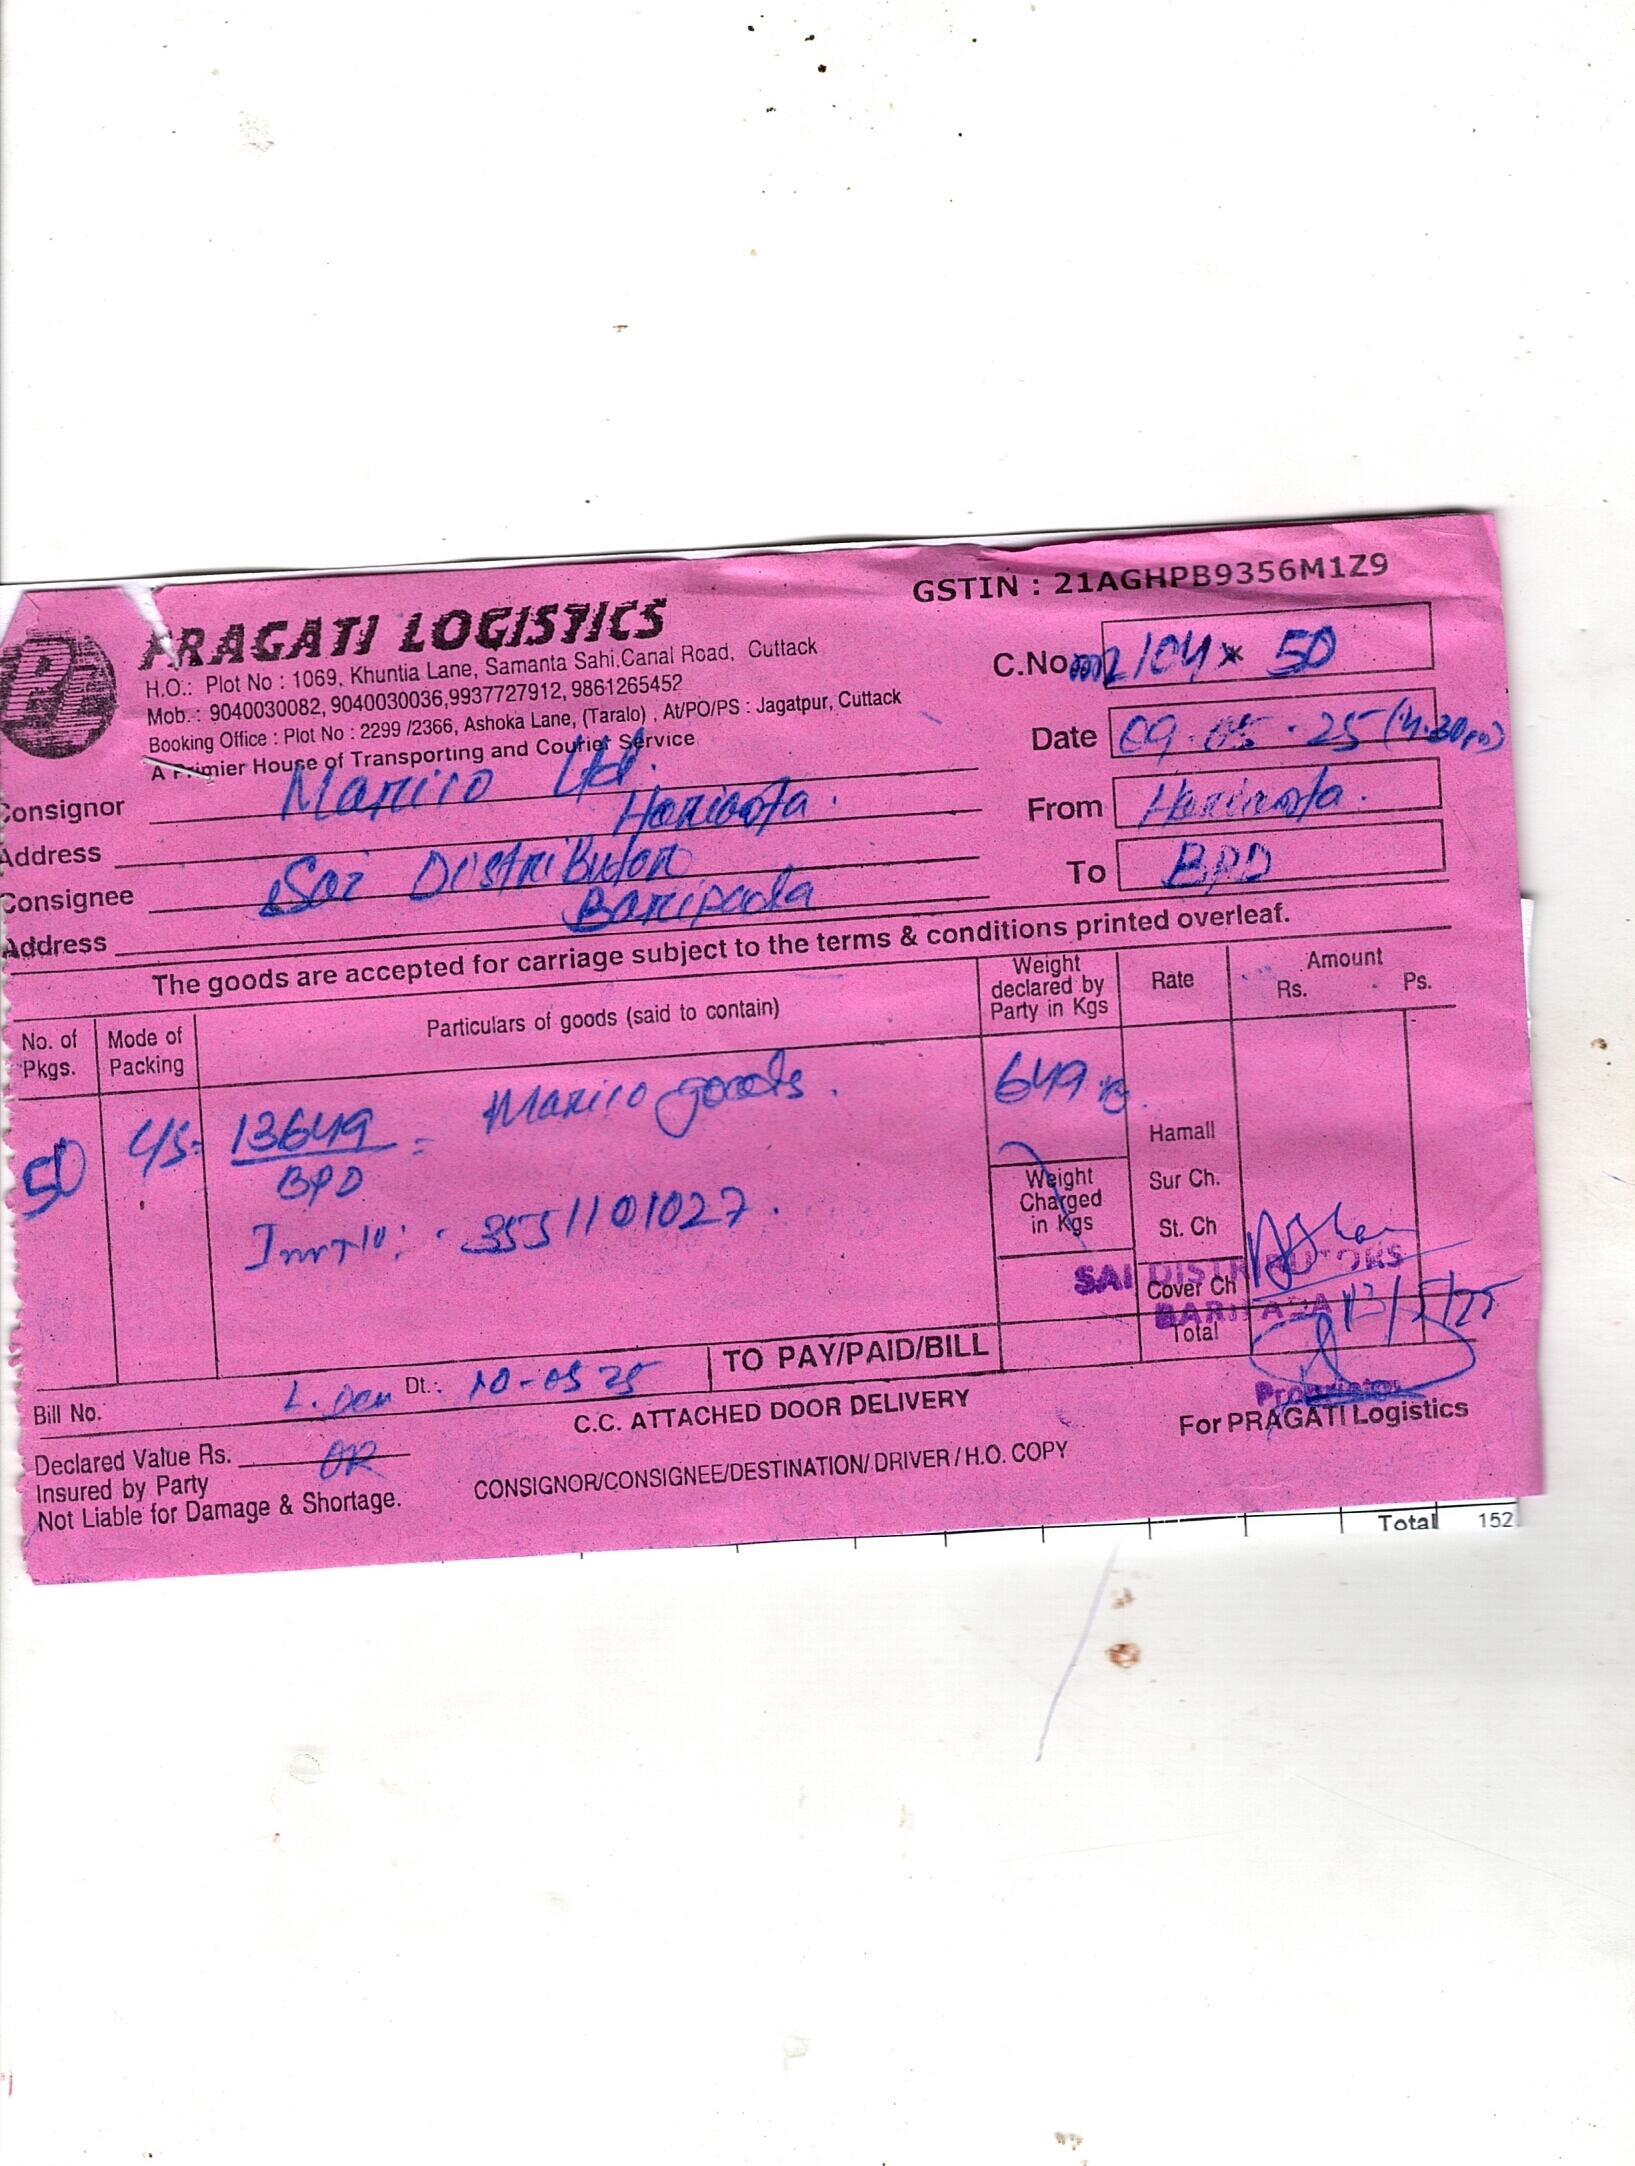 GSTIN : 21AGHPB9356M1Z9
PL
PRAGATI LOGISTICS
H.O.: Plot No : 1069, Khuntia Lane, Samanta Sahi,Canal Road, Cuttack
Mob.: 9040030082, 9040030036,9937727912, 9861265452
Booking Office : Plot No : 2299 /2366, Ashoka Lane, (Taralo) , At/PO/PS : Jagatpur, Cuttack
A Primier House of Transporting and Courier Service
C.No. 2104 x 50
Date 09.05.25 (4.30pm)
Consignor Marico Ltd.
Address
From
Consignee Sai Distributor
Address Baripada
To BPD
The goods are accepted for carriage subject to the terms & conditions printed overleaf.
No. of Pkgs.
Mode of Packing
Particulars of goods (said to contain)
Weight declared by Party in Kgs
Rate
Amount
Rs. Ps.
50 C/S- 13649 = Marico goods. 649
BPD
3551101027.
Hamall
Weight Charged in Kgs
Sur Ch.
St. Ch
Cover Ch
Total
SAI DISTRIBUTORS
BARIPADA
13/5/25
Proprietor
TO PAY/PAID/BILL
Bill No. Dt.: 10-05 25
C.C. ATTACHED DOOR DELIVERY
For PRAGATI Logistics
Declared Value Rs.
Insured by Party
Not Liable for Damage & Shortage.
CONSIGNOR/CONSIGNEE/DESTINATION/ DRIVER / H.O. COPY
Total 152